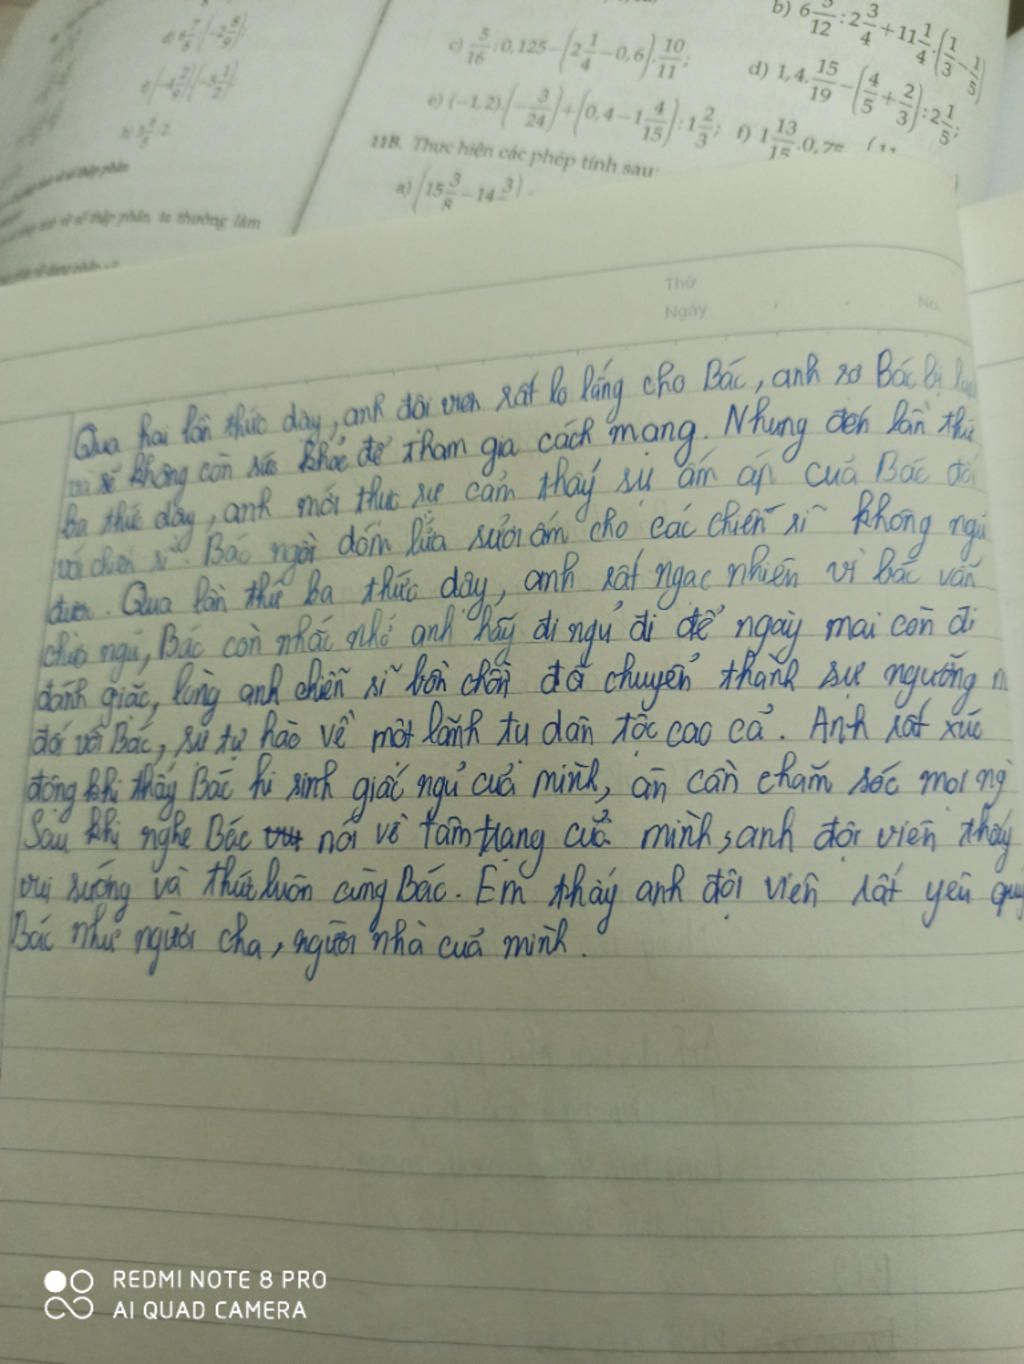 b) 6 5/12 : 2 3/4 + 11 1/4 . (1/3 - 1/5)
c) 5/16 : 0,125 - (2 1/4 - 0,6) . 10/11;
d) 1,4 . 15/19 - (4/5 + 2/3) : 2 1/5;
e) (-1,2) . (-3/24) + (0,4 - 1 4/15) : 1 2/3;
f) 1 13/15 . 0,75
11B. Thực hiện các phép tính sau:
a) (15 3/8 - 14 3
ta thường làm
Thứ
Ngày
No.
Qua hai lần thức dậy, anh đội viên rất lo lắng cho Bác, anh sợ Bác bị
sẽ không còn sức khỏe để tham gia cách mạng. Nhưng đến lần thứ
ba thức dậy, anh mới thực sự cảm thấy sự ấm áp của Bác đối
với chiến sĩ. Bác ngồi đốm lửa sưởi ấm cho các chiến sĩ không ngủ
được. Qua lần thứ ba thức dậy, anh rất ngạc nhiên vì bác vẫn
chưa ngủ, Bác còn nhắc nhở anh hãy đi ngủ đi để ngày mai còn đi
đánh giặc, lòng anh chiến sĩ bồn chồn đã chuyển thành sự ngưỡng m
đối với Bác, sự tự hào về một lãnh tụ dân tộc cao cả. Anh rất xúc
động khi thấy Bác hi sinh giấc ngủ của mình, ân cần chăm sóc mọi ng
Sau khi nghe Bác nói về tâm trạng của mình, anh đội viên thấy
vui sướng và thức luôn cùng Bác. Em thấy anh đội viên rất yêu quý
Bác như người cha, người nhà của mình.
REDMI NOTE 8 PRO
AI QUAD CAMERA